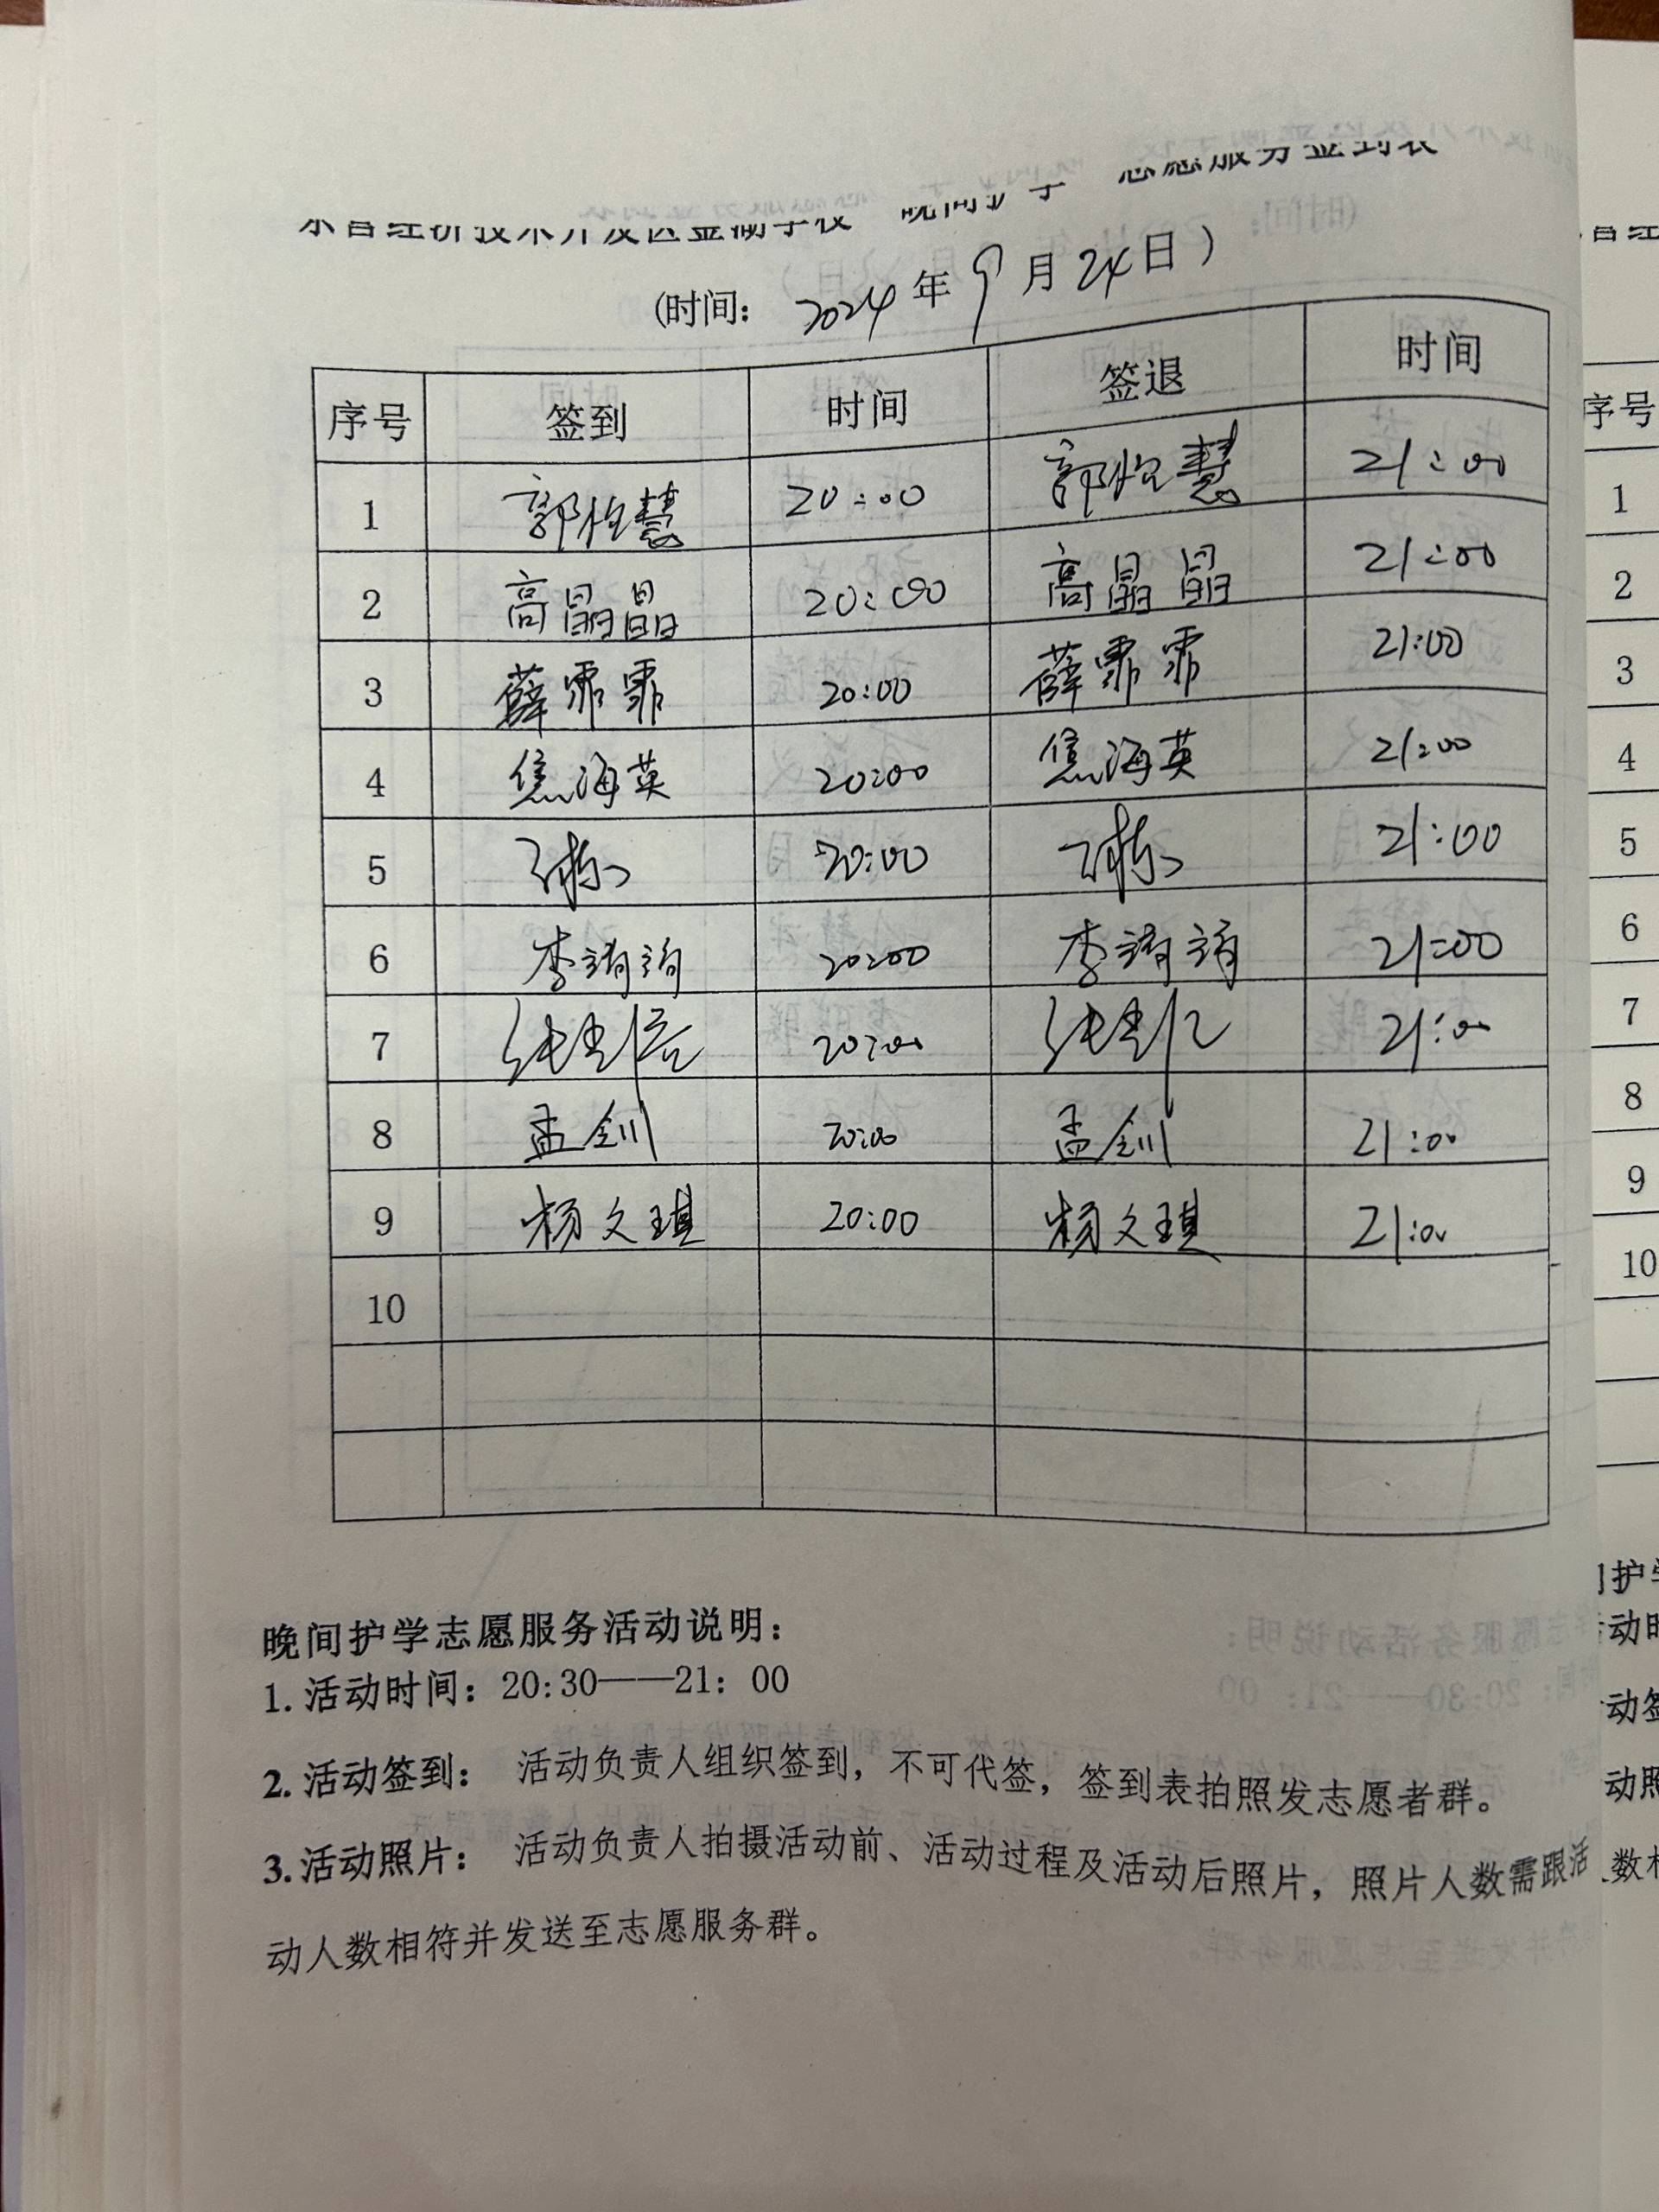 东营经济技术开发区金湖学校 晚间护学 志愿服务签到表
(时间: 2024年9月24日)
序号 签到 时间 签退 时间
1 郭怡慧 20:00 郭怡慧 21:00
2 高晶晶 20:00 高晶晶 21:00
3 薛霏霏 20:00 薛霏霏 21:00
4 焦海英 20:00 焦海英 21:00
5 20:00 21:00
6 李 20:00 李 21:00
7 20:00 21:00
8 孟剑 20:00 孟剑 21:00
9 杨文琪 20:00 杨文琪 21:00
10
晚间护学志愿服务活动说明:
1.活动时间:20:30——21:00
2.活动签到: 活动负责人组织签到,不可代签,签到表拍照发志愿者群。
3.活动照片: 活动负责人拍摄活动前、活动过程及活动后照片,照片人数需跟活
动人数相符并发送至志愿服务群。
序号
1
2
3
4
5
6
7
8
9
10